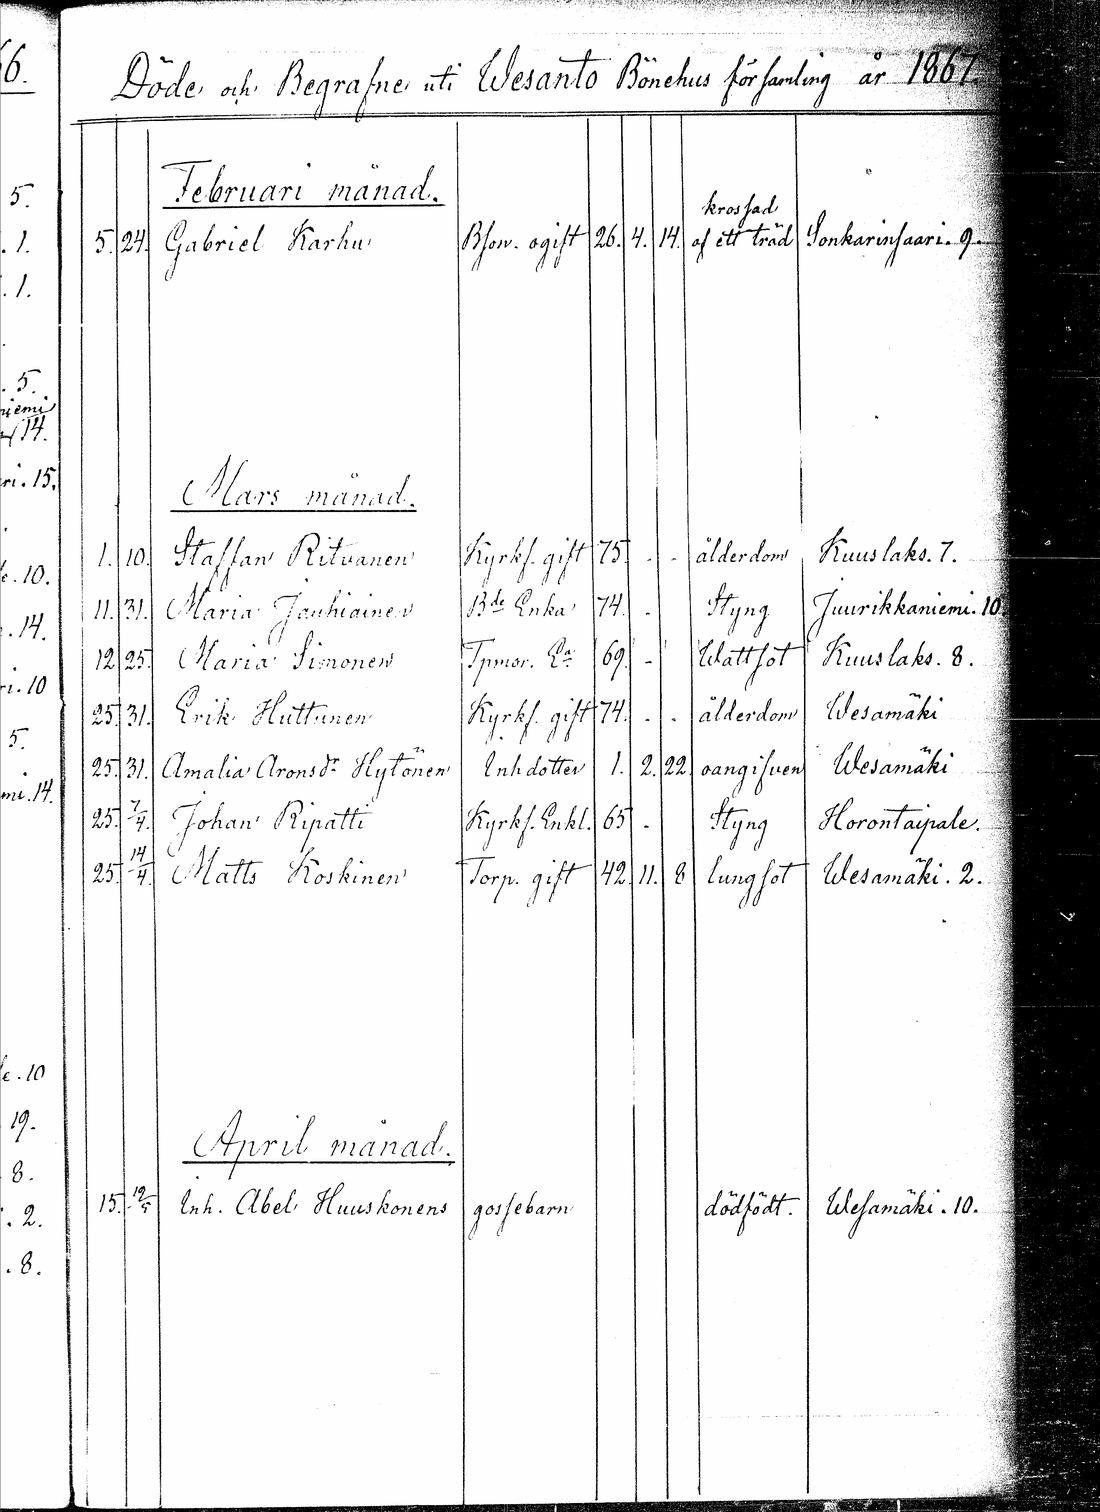 66.
Döde och Begrafne uti Wesanto Bönehus församling år 1867.
Februari månad.
5. 24. Gabriel Karhu Bson. ogift 26. 4. 14. krossad af ett träd Sonkarinsaari. 9.
Mars månad.
1. 10. Staffan Ritvanen Kyrkf. gift 75. - - ålderdom Kuuslaks. 7.
11. 31. Maria Jauhiainen Bde Enka 74. - Styng Juurikkaniemi. 10
12. 25. Maria Simonen Tpmor. Ea 69. - Wattsot Kuuslaks. 8.
25. 31. Erik Huttunen Kyrkf. gift 74. - - ålderdom Wesamäki
25. 31. Amalia Aronsdr Hytönen Inhdotter 1. 2. 22. oangifven Wesamäki
25. 7/4. Johan Ripatti Kyrkf. Enkl. 65. - Styng Horontaipale.
25. 14/4. Matts Koskinen Torp. gift 42. 11. 8 lungsot Wesamäki. 2.
April månad.
15. 12/5 Inh. Abel Huuskonens gossebarn dödfödt. Wesamäki. 10.
5.
. 1.
. 1.
. 5.
niemi
14.
ri. 15.
e. 10.
. 14.
ri. 10
5.
mi. 14.
e. 10
19.
8.
. 2.
. 8.